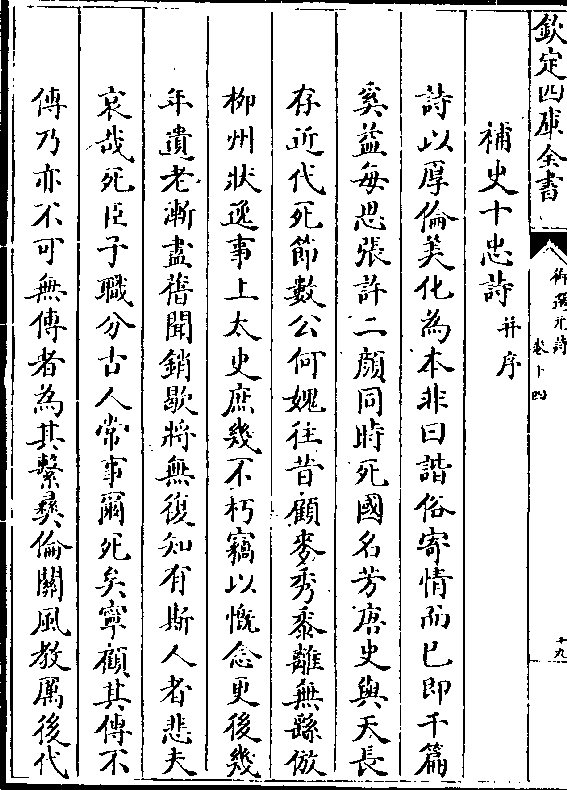 欽定四庫全書
御選元詩
卷十四
十九
補史十忠詩并序
詩以厚倫美化為本非曰諧俗寄情而已即千篇
奚益每思張許二顔同時死國名芳唐史與天長
存近代死節數公何媿往昔顧麥秀黍離無繇倣
柳州狀逸事上太史庶幾不朽竊以慨念更後幾
年遺老漸盡舊聞銷歇將無復知有斯人者悲夫
哀哉死臣子職分古人常事爾死矣寧顧其傳不
傳乃亦不可無傳者為其繫彞倫關風教厲後代